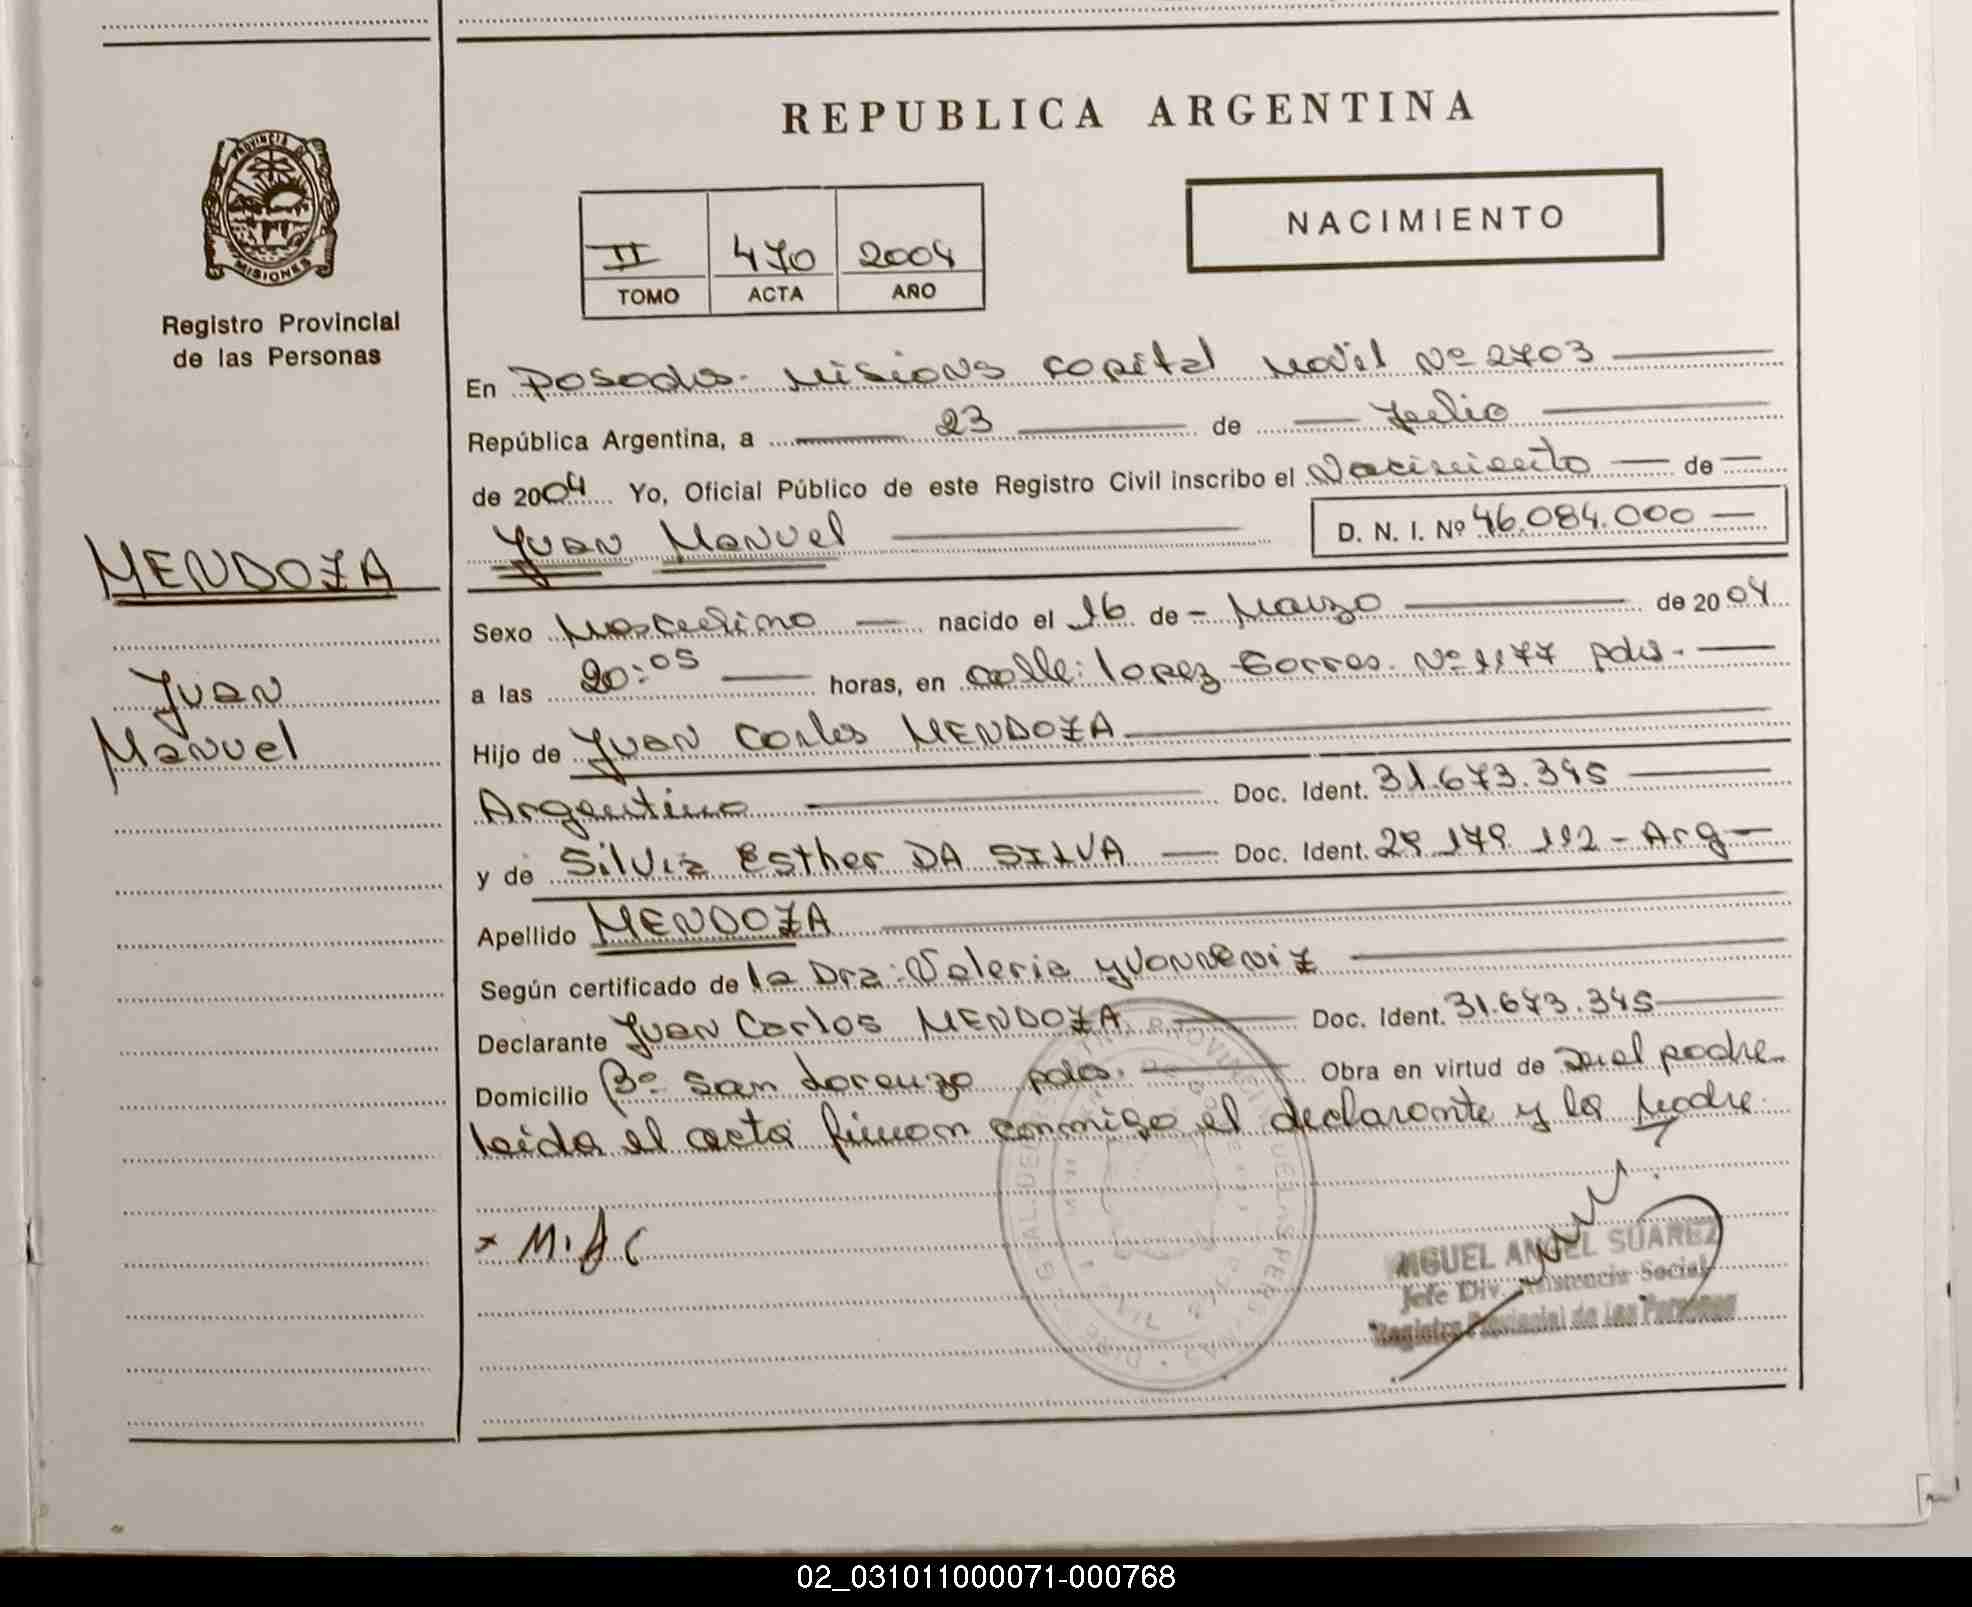 REPUBLICA ARGENTINA
NACIMIENTO
II 470 2004
TOMO ACTA AÑO
PROVINCIA DE
MISIONES
Registro Provincial
de las Personas
MENDOZA
Juan
Manuel
En Posadas. Misiones capital Movil Nº 2703
República Argentina, a 23 de Julio
de 2004 Yo, Oficial Público de este Registro Civil inscribo el Nacimiento de
Juan Manuel D. N. I. Nº 46.084.000
Sexo Masculino nacido el 16 de Marzo de 2004
a las 20:05 horas, en calle: lopez torres. Nº 1177 pdas.
Hijo de Juan Carlos MENDOZA
Argentino Doc. Ident. 31.673.345
y de Silvia Esther DA SILVA Doc. Ident. 29.179.192 - Arg
Apellido MENDOZA
Según certificado de la Dra: Valeria
Declarante Juan Carlos MENDOZA Doc. Ident. 31.673.345
Domicilio Bº San Lorenzo pdas. Obra en virtud de Ser el padre
leida el acta firman conmigo el declarante y la Madre.
x M.J C
MIGUEL ANGEL SUAREZ
Jefe Div. Asistencia Social
Registro Provincial de las Personas
02_031011000071-000768